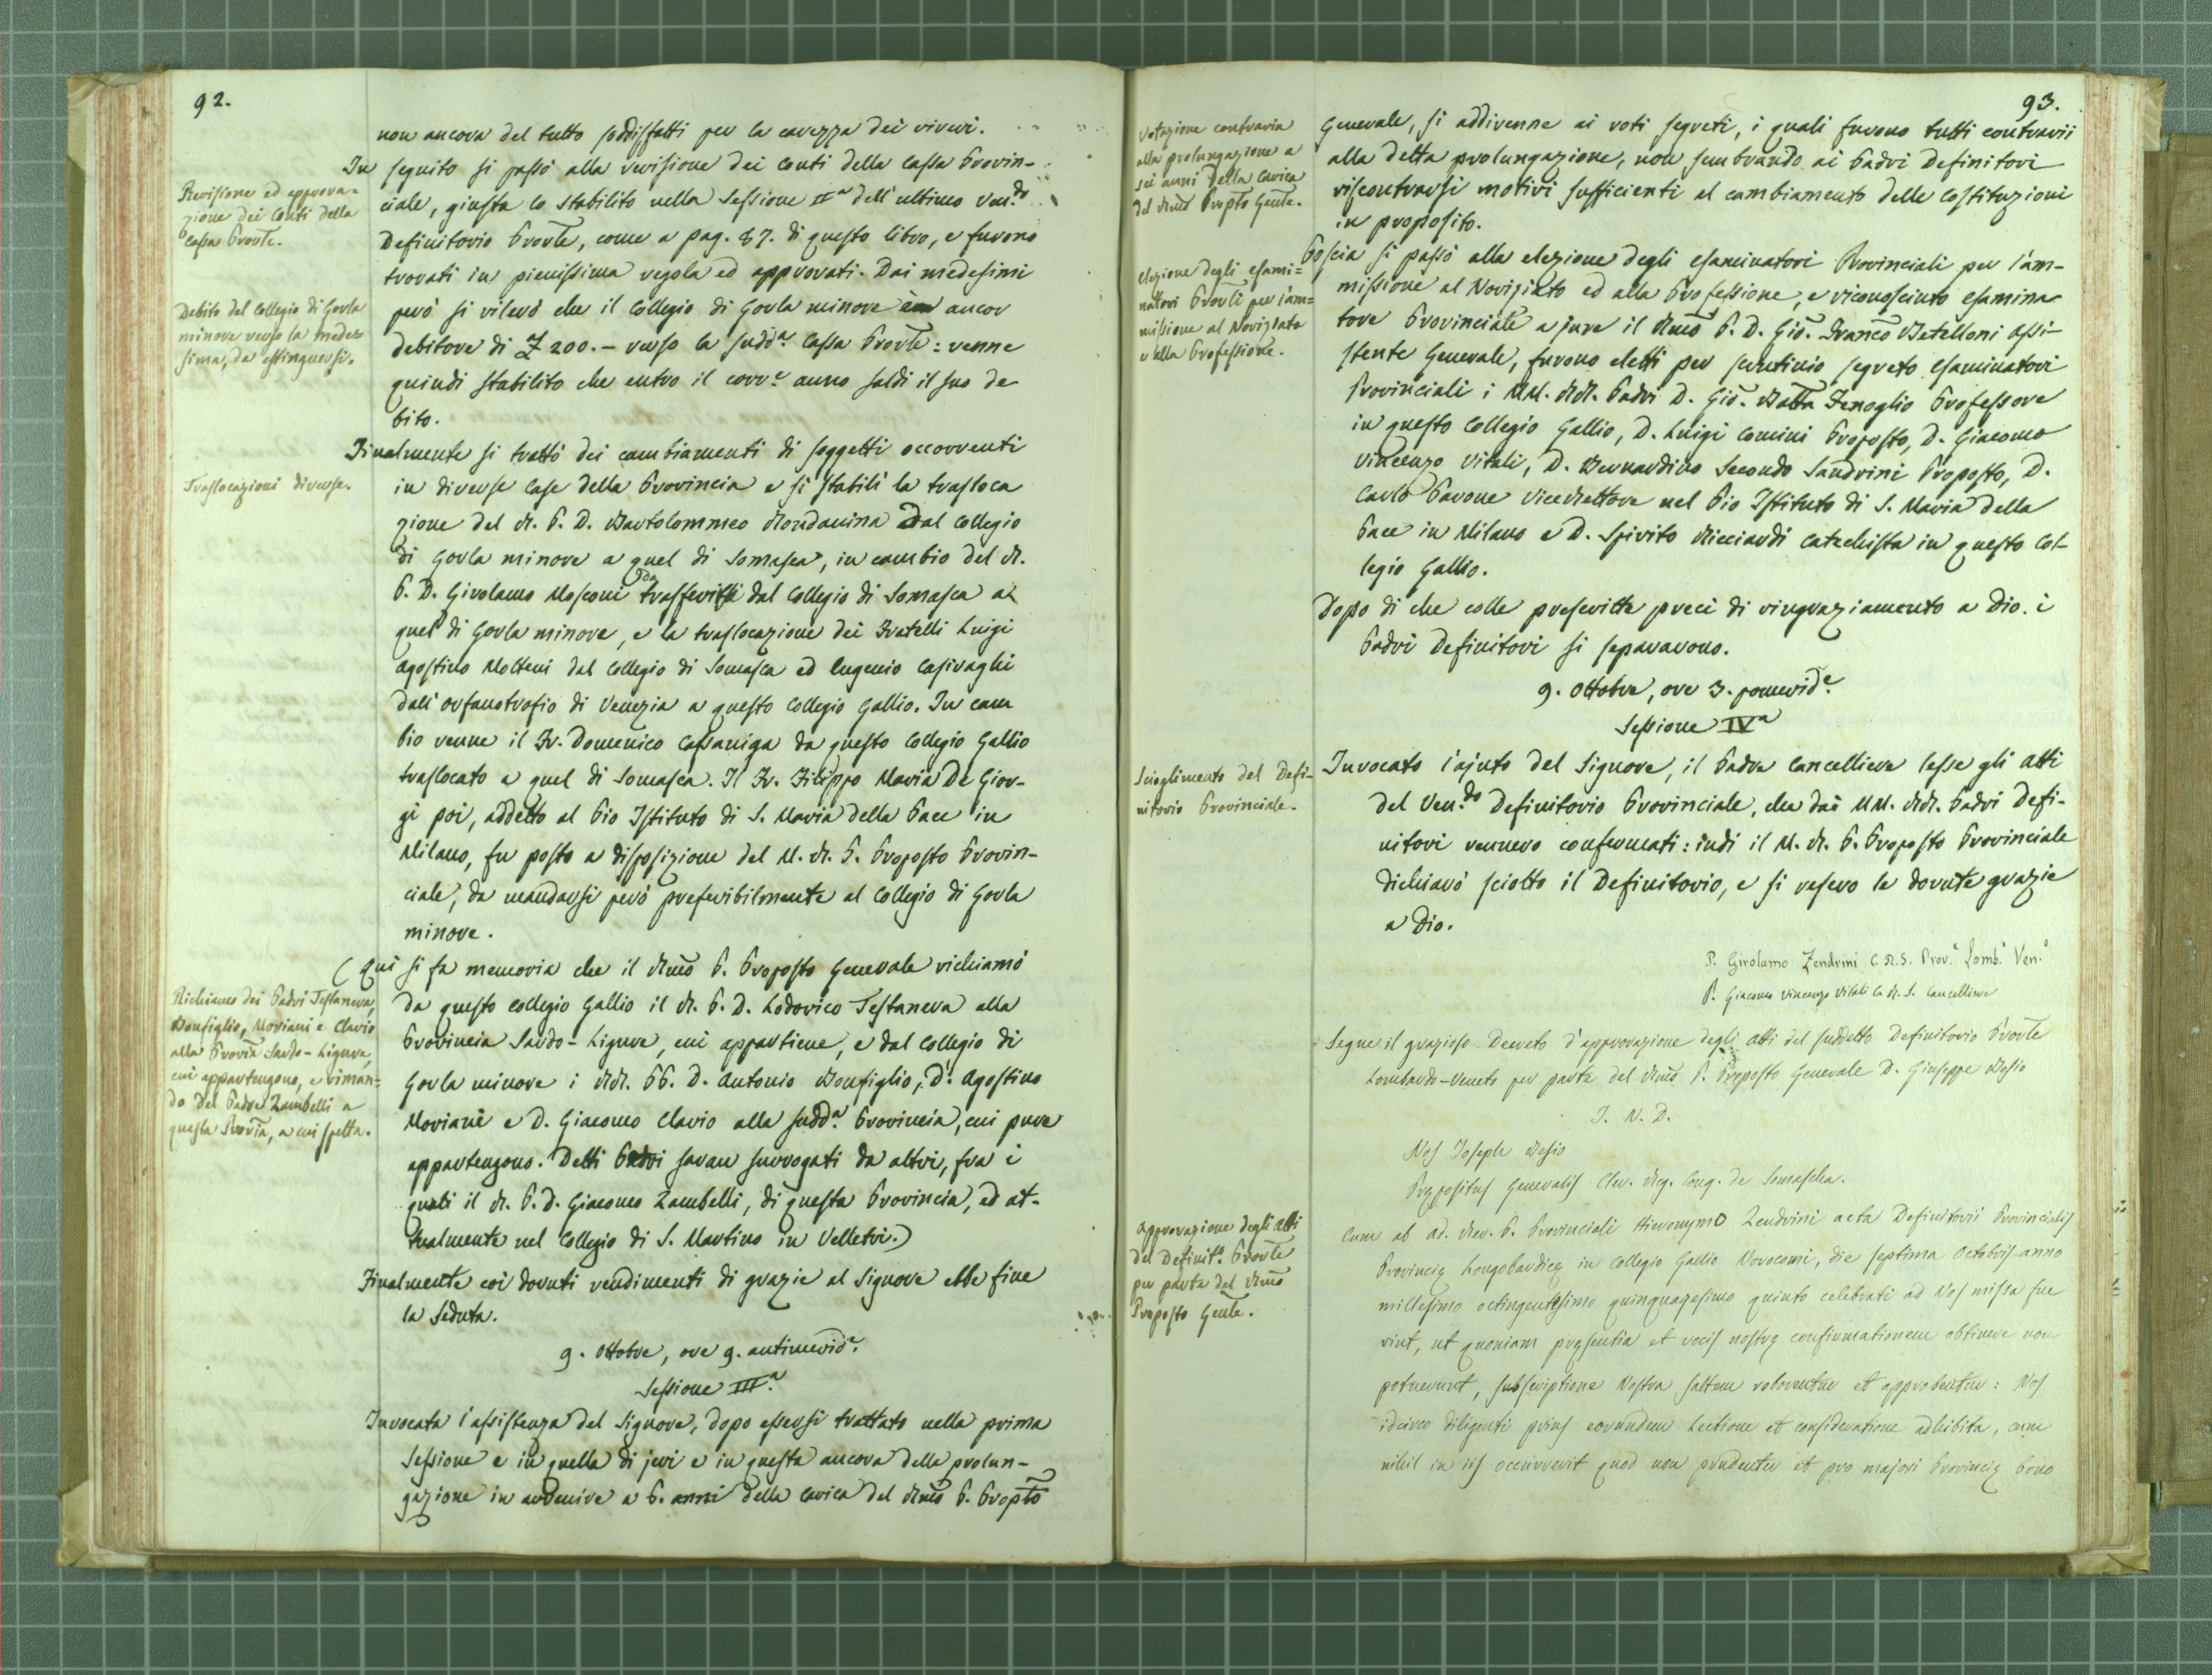 92.
non ancora del tutto soddisfatti per la carezza dei viveri.
In seguito si passò alla revisione dei Conti della Cassa Provin-
ciale, giusta lo stabilito nella Sessione IIª dell'ultimo Ven.do
Definitorio Provle, come a pag. 87. di questo libro, e furono
trovati in pienissima regola ed approvati. Dai medesimi
però si rilevò che il Collegio di Gorla minore è ancor
debitore di £ 200.– verso la sudd.a Cassa Provle: venne
quindi stabilito che entro il corr.e anno saldi il suo de
bito.
Finalmente si trattò dei cambiamenti di soggetti occorrenti
in diverse Case della Provincia e si stabilì la trasloca
zione del R. P. D. Bartolommeo Rondanina dal Collegio
di Gorla minore a quel di Somasca, in cambio del R.
P. D. Girolamo Mosconi da trasferirsi dal Collegio di Somasca a
quel di Gorla minore, e la traslocazione dei Fratelli Luigi
Agostino Molteni dal Collegio di Somasca ed Eugenio Casiraghi
dall'orfanotrofio di Venezia a questo Collegio Gallio. In cam
bio venne il Fr. Domenico Cassaniga da questo Collegio Gallio
traslocato a quel di Somasca. Il Fr. Filippo Maria De Gior-
gi poi, addetto al Pio Istituto di S. Maria della Pace in
Milano, fu posto a disposizione del M. R. P. Proposto Provin-
ciale, da mandarsi però preferibilmente al Collegio di Gorla
minore.
(Qui si fa memoria che il Rmo P. Proposto Generale richiamò
da questo Collegio Gallio il R. P. D. Lodovico Testanera alla
Provincia Sardo-Ligure, cui appartiene, e dal Collegio di
Gorla minore i RR. PP. D. Antonio Bonfiglio, D. Agostino
Moriani e D. Giacomo Clavio alla sudd.a Provincia, cui pure
appartengono. Detti Padri saran surrogati da altri, fra i
quali il R. P. D. Giacomo Zambelli, di questa Provincia, ed at-
tualmente nel Collegio di S. Martino in Velletri.)
Finalmente coi dovuti rendimenti di grazie al Signore ebbe fine
la Seduta.
9. Ottobre, ore 9. antimerid.e
Sessione III.a
Invocata l'assistenza del Signore, dopo essersi trattato nella prima
Sessione e in quella di jeri e in questa ancora della prolun-
gazione in avvenire a 6. anni della carica del Rmo P. Propto
Revisione ed approva=
zione dei Conti della
Cassa Provle.
Debito del Collegio di Gorla
minore verso la mede-
sima, da estinguersi.
Traslocazioni diverse.
Richiamo dei Padri Testanera,
Bonfiglio, Moriani e Clavio
alla Provia Sardo-Ligure,
cui appartengono, e riman=
do del Padre Zambelli a
questa Provia, a cui spetta.
93.
Generale, si addivenne ai voti segreti, i quali furono tutti contrarii
alla detta prolungazione, non sembrando ai Padri Definitori
riscontrarsi motivi sufficienti al cambiamento delle Costituzioni
in proposito.
Poscia si passò alla elezione degli esaminatori Provinciali per l'am-
missione al Noviziato ed alla Professione, e riconosciuto esamina
tore Provinciale a jure il Rmo P. D. Gio. Franco Batelloni Assi-
stente Generale, furono eletti per scrutinio segreto esaminatori
Provinciali i MM. RR. Padri D. Gio. Batta Fenoglio Professore
in questo Collegio Gallio, D. Luigi Comini Proposto, D. Giacomo
Vincenzo Vitali, D. Bernardino Secondo Sandrini Proposto, D.
Carlo Pavone ViceRettore nel Pio Istituto di S. Maria della
Pace in Milano e D. Spirito Ricciardi Catechista in questo Col-
legio Gallio.
Dopo di che colle prescritte preci di ringraziamento a Dio i
Padri Definitori si separarono.
9. Ottobre, ore 3. pomerid.e
Sessione IVa
Invocato l'ajuto del Signore, il Padre Cancelliere lesse gli atti
del Ven.do Definitorio Provinciale, che dai MM. RR. Padri Defi-
nitori vennero confermati: indi il M. R. P. Proposto Provinciale
dichiarò sciolto il Definitorio, e si resero le dovute grazie
a Dio.
P. Girolamo Zendrini C. R. S. Prov.e Lomb.o Ven.o
P. Giacomo Vincenzo Vitali C. R. S. Cancelliere
Segue il grazioso Decreto d'approvazione degli atti del suddetto Definitorio Provle
Lombardo-Veneto per parte del Rmo P. Proposto Generale D. Giuseppe Besio
I. N. D.
Nos Joseph Besio
Præpositus Generalis Cler. Reg. Cong. de Somascha.
Cum ab ad. Rev. P. Provinciali Hieronymo Zendrini acta Definitorii Provincialis
Provinciæ Longobardicæ in Collegio Gallio Novocomi, die septima Octobris anno
millesimo octingentesimo quinquagesimo quinto celebrati ad Nos missa fue
rint, ut quoniam præsentia et vocis nostræ confirmationem obtinere non
potuerunt, subscriptione Nostra saltem roborentur et approbentur: Nos
idcirco diligenti prius eorundem lectione et consideratione adhibita, cum
nihil in iis occurrerit quod non prudenter et pro majori Provinciæ bono
Votazione contraria
alla prolungazione a
sei anni della carica
del Rmo Propto Gnle.
Elezione degli esami=
natori Provli per l'am=
missione al Noviziato
e alla Professione.
Scioglimento del Defi-
nitorio Provinciale.
Approvazione degli atti
del Definit.o Provle
per parte del Rmo
Proposto Gnle.